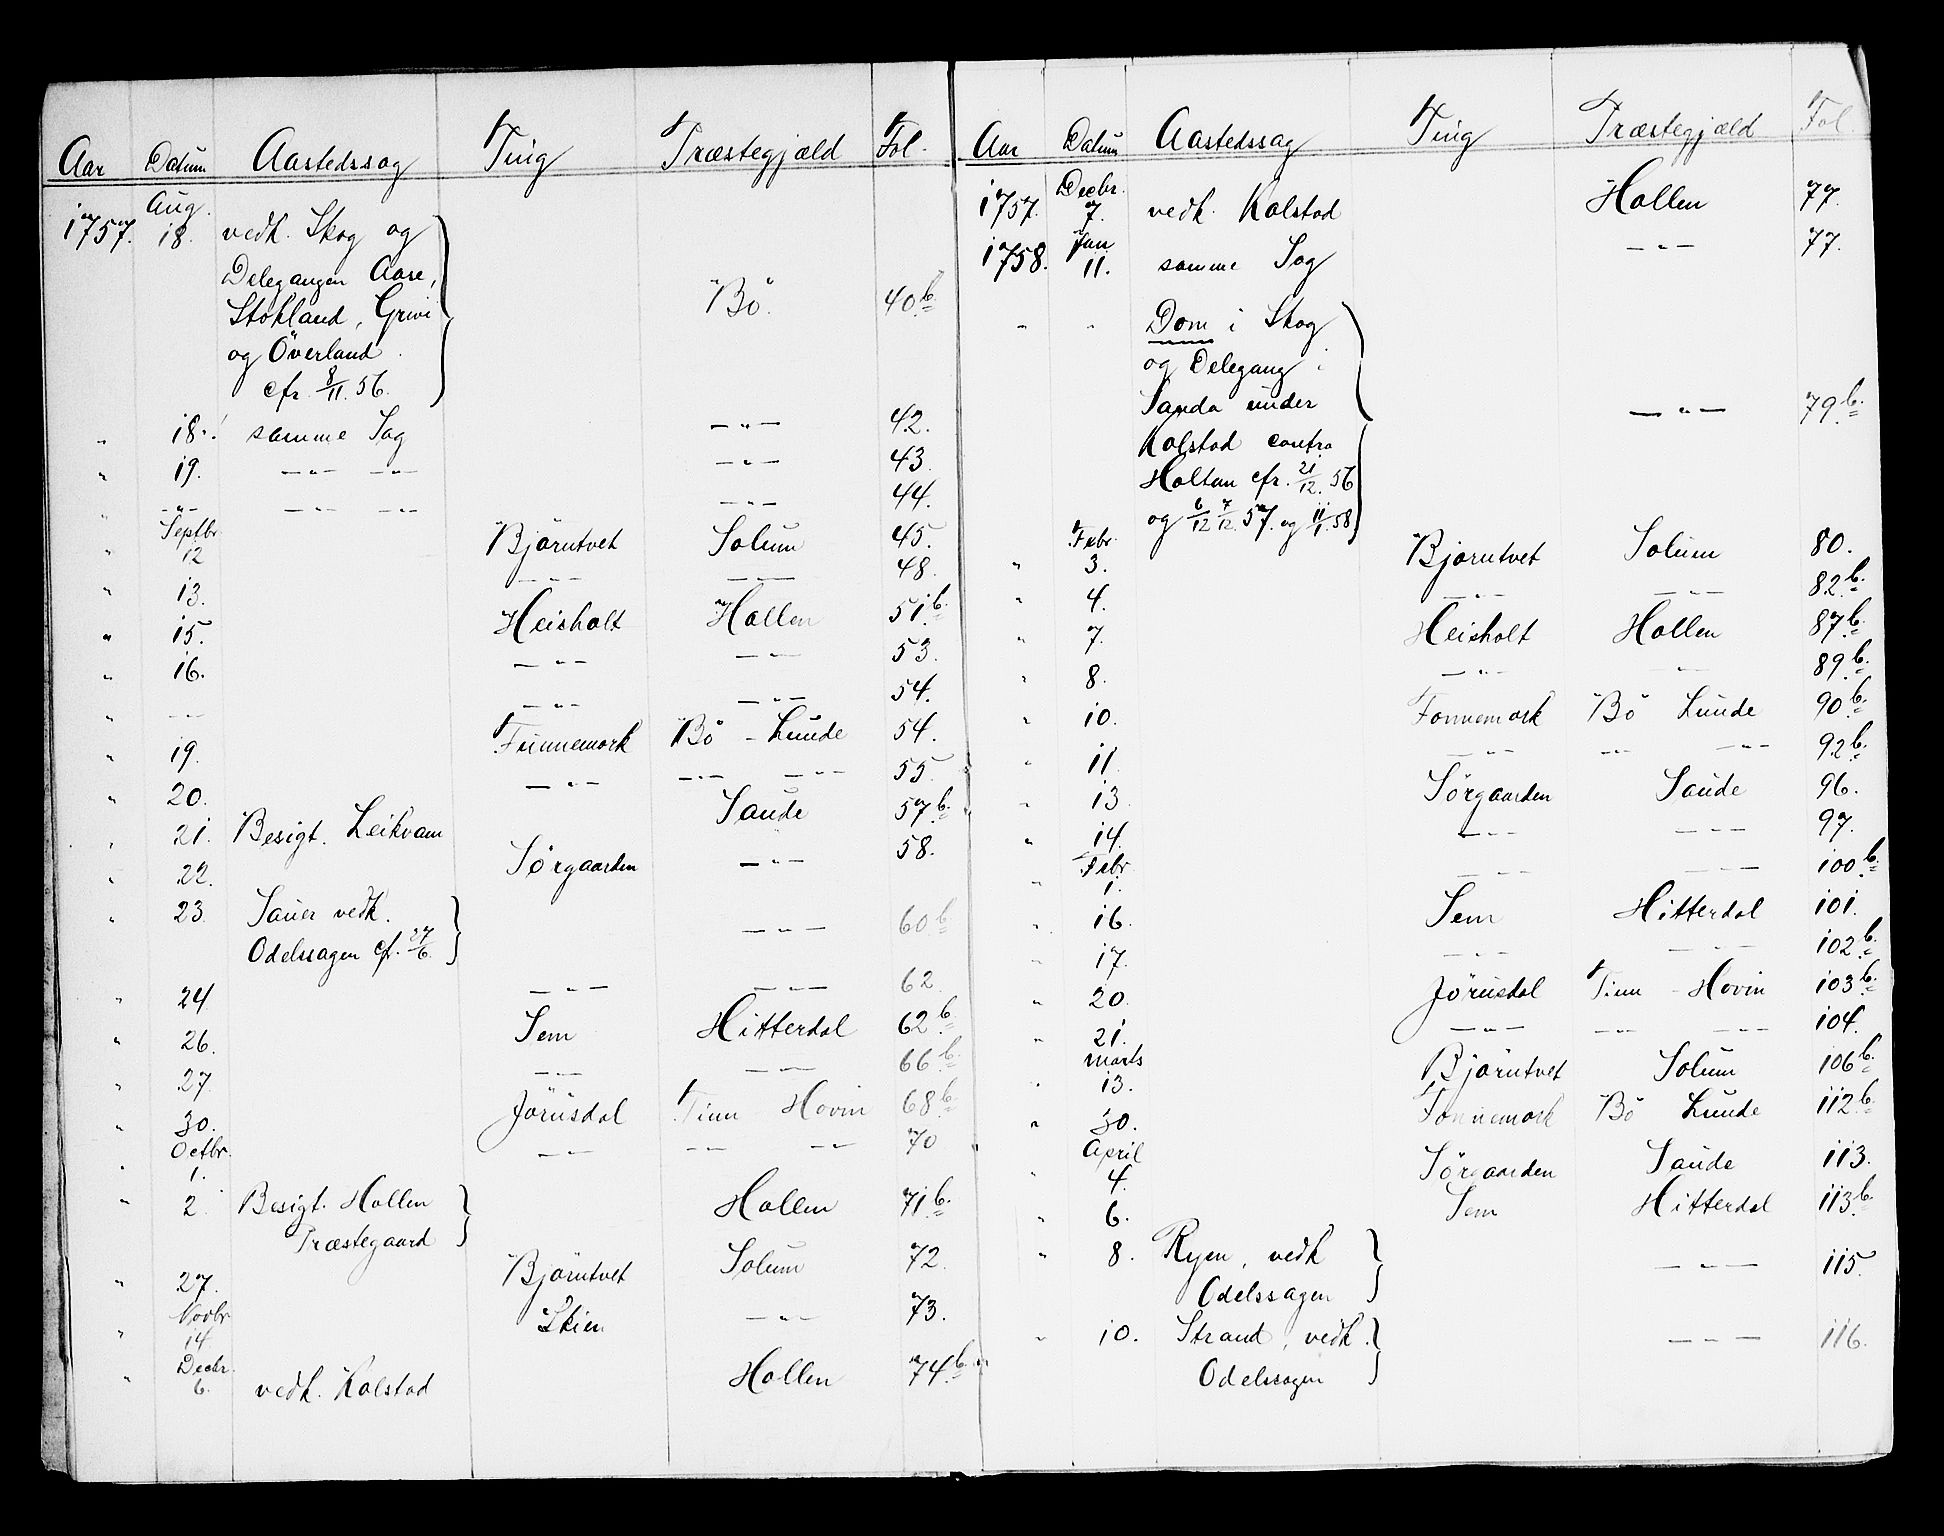 Aar Datum Aastedssag Ting Præstegjæld Fol.
Aug.
1757. 18. vedk. Skog og
Delegangen Aase,
Stokland, Grivi Bö. 40 b.
og Överland.
cfr. 8/11. 56.
" 18. samme Sag — " — 42.
" 19. — " — — " — — " — 43.
" — " — — " — — " — — " — 44.
Septbr
" 12 Björntvet Solum 45.
" 13. — " — — " — 48.
" 15. Heisholt Hollen 51 b.
" 16. — " — — " — 53.
" — " — — " — — " — 54.
" 19. Funnemork Bö - Lunde 54.
" 20. — " — — " — — " — 55.
" 21. Besigt. Leikvam Saude 57 b.
" 22. Sörgaarden — " — 58.
" 23. Sauer vedk.
Odelssagen cf. 27/6. — " — 60 b.
" 24 — " — — " — 62.
" 26. Sem Hitterdal 62 b.
" 27. — " — — " — 66 b.
" 30. Jörusdal Tinn - Hovin 68 b.
Octbr.
" 1. — " — — " — — " — 70
" 2. Besigt. Hollen Hollen 71 b.
Præstegaard
" 27. Björntvet Solum 72.
Novbr
" 14 Skien — " — 73.
Decbr.
" 6. vedk. Kolstad Hollen 74 b.
Aar Datum Aastedssag Ting Præstegjæld Fol.
Decbr.
1757. 7. vedk. Kolstad Hollen 77.
Jan
1758. 11. samme Sag — " — 77.
" " Dom i Skog
og Delegang i
Sanda under — " — 79 b.
Kolstad contra
Holtan cfr. 21/12. 56
og 6/12 7/12. 57. og 11/1. 58
Febr.
" 3. Björntvet Solum 80.
" 4. — " — — " — 82 b.
" 7. Heisholt Hollen 87 b.
" 8. — " — — " — 89 b.
" 10. Fonnemork Bö Lunde 90 b.
" 11. — " — — " — — " — 92 b.
" 13. Sörgaarden Saude 96.
" 14. — " — — " — 97.
Febr
" 1. — " — — " — 100 b.
" 16. Sem Hitterdal 101.
" 17. — " — — " — 102 b.
" 20. Jörusdal Tinn - Hovin 103 b.
" 21. — " — — " — — " — 104.
Marts
" 13. Björntvet Solum 106 b.
" 30. Fonnemork Bö Lunde 112 b.
April
" 4. Sörgaarden Saude 113.
" 6. Sem Hitterdal 113 b.
" 8. Ryen, vedk — " — 115.
Odelssagen
" 10. Strand, vedk. — " — 116.
Odelssagen